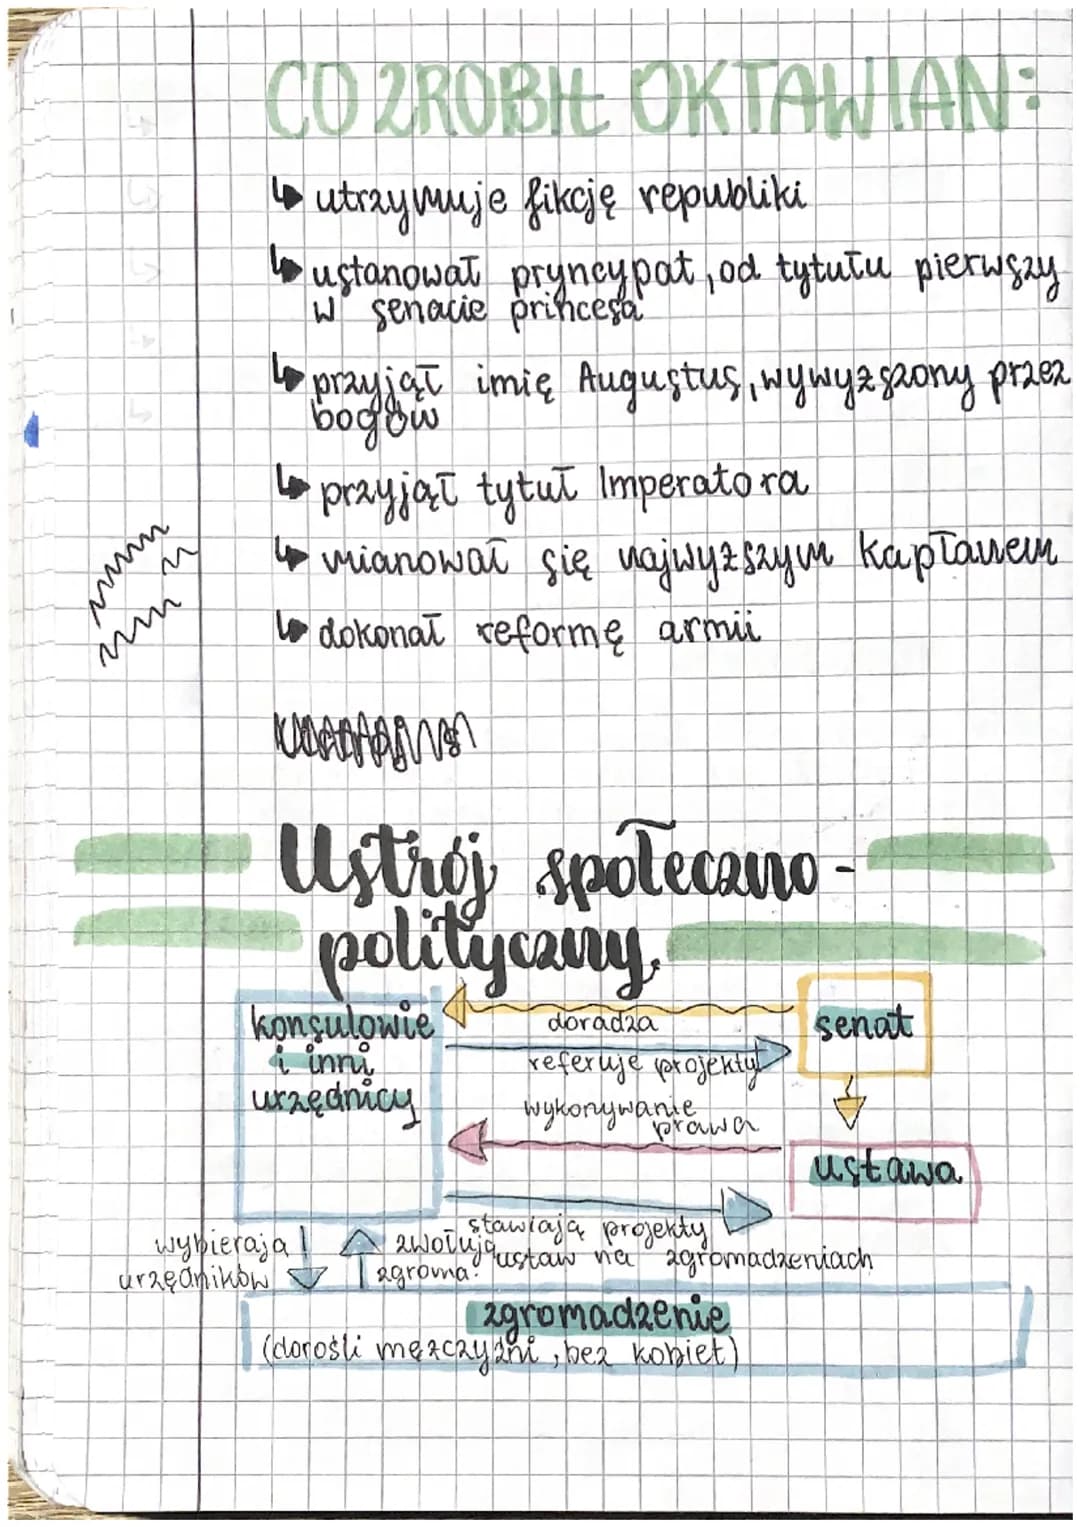 CO ZROBIŁ OKTAWIAN:
↳ utrzymuje fikcję republiki
↳ ustanował pryncypat, od tytułu pierwszy
w senacie princesa
↳ przyjął imię Augustus, wywyższony przez
bogów
↳ przyjął tytuł Imperatora
↳ mianował się najwyższym kapłanem
↳ dokonał reformę armii
Ustrój społeczno-
polityczny
konsulowie
i inni
urzędnicy
doradza
senat
referuje projekty
wykonywanie
prawa
ustawa
stawiają projekty
ustaw na zgromadzeniach
wybieraja
urzędników
zwołują
zgroma.
zgromadzenie
(dorośli mężczyźni, bez kobiet)